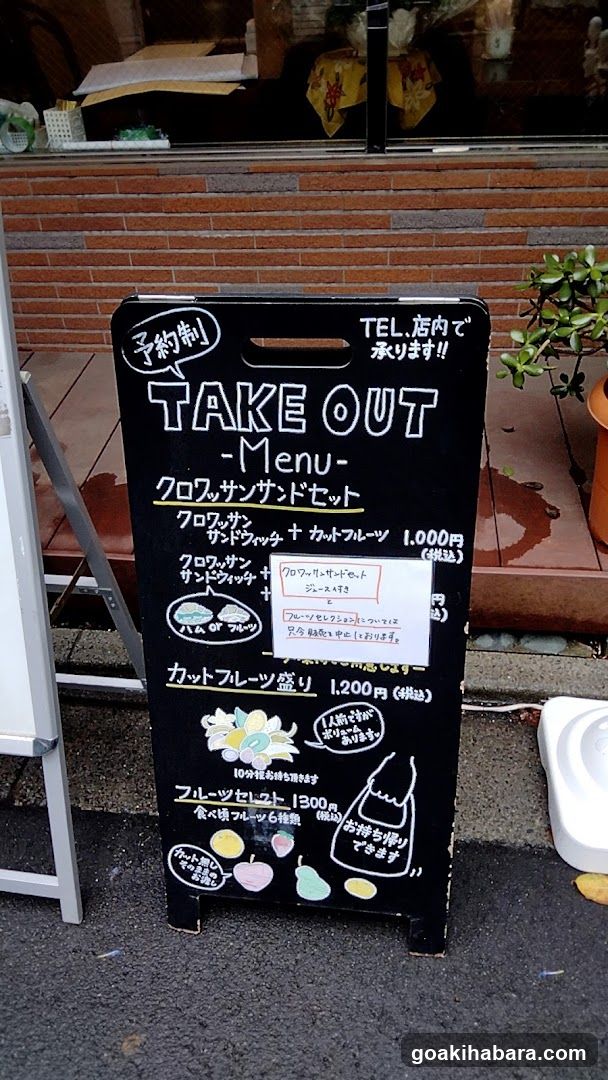 予約制
TEL.店内で
承ります!!
TAKE OUT
-Menu-
クロワッサンサンドセット
クロワッサン
サンドウィッチ + カットフルーツ 1.000円
(税込)
クロワッサン
サンドウィッチ +
+ 円
ハム or フルーツ
クロワッサンサンドセット
ジュース付き
と
フルーツセレクションについては
只今販売を中止しております。
カットフルーツ盛り 1,200円(税込)
1人前ですが
ボリューム
あります
10分程お待ち頂きます
フルーツセレクト 1300円
食べ頃フルーツ6種類 (税込)
カット無し
そのままの
お渡し
お持ち帰り
できます
goakihabara.com